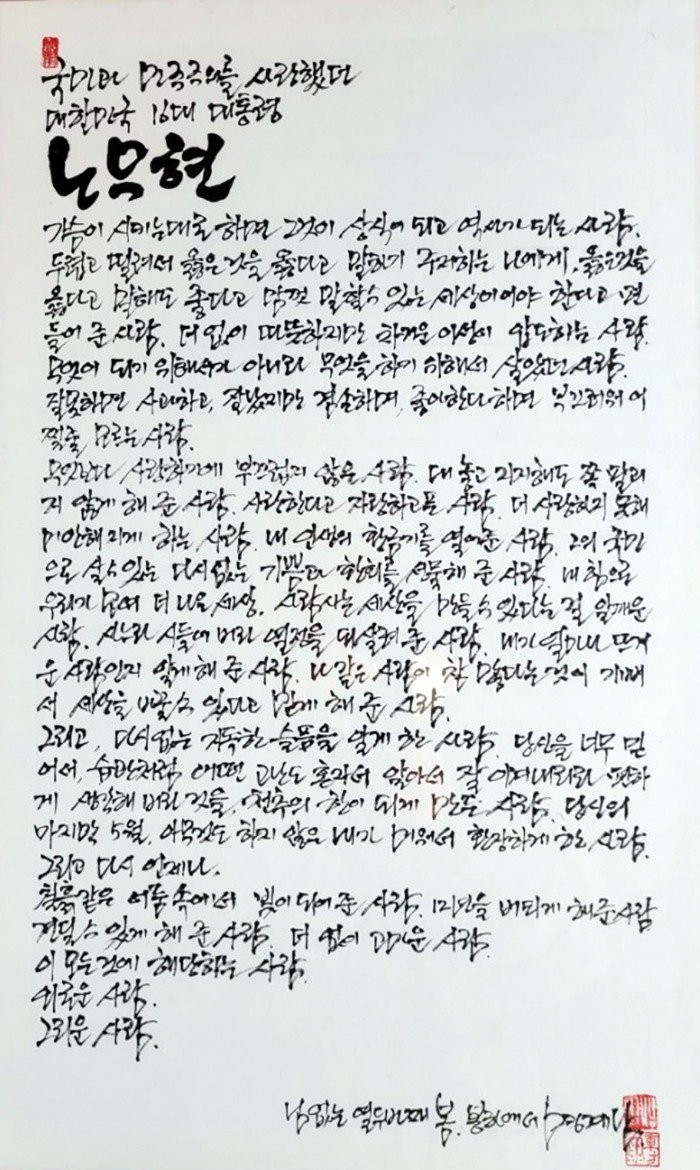 국민과 민주주의를 사랑했던
대한민국 16대 대통령
노무현
가슴이 시키는대로 하면 그것이 상식이 되고 역사가 되는 사람.
두렵고 떨려서 옳은 것을 옳다고 말하기 주저하는 나에게, 옳은것을
옳다고 말해도 좋다고 맘껏 말할수 있는 세상이어야 한다고 편
들어 준 사람. 더 없이 따뜻하지만 차가운 이성이 압도하는 사람.
무엇이 되기 위해서가 아니라 무엇을 하기 위해서 살았던 사람.
잘못하면 사과하고, 잘났지만 겸손하며, 좋아한다 하면 부끄러워 어
찌할줄 모르는 사람.
무엇보다 사랑하기에 부끄럽지 않은 사람. 대 놓고 지지해도 쪽 팔리
지 않게 해 준 사람. 사랑한다고 자랑하고픈 사람. 더 사랑하지 못해
미안해지게 하는 사람. 내 인생의 황금기를 열어준 사람. 그의 국민
으로 살수있는 다시없는 기쁨과 환희를 선물해 준 사람. 내 힘으로
우리가 모여 더 나은 세상. 사람사는 세상을 만들수 있다는 걸 일깨운
사람. 사느라 시들어 버린 열정을 되살려 준 사람. 내가 얼마나 뜨거
운 사람인지 알게 해 준 사람. 나 같은 사람이 참 많다는 것이 기대
서 세상을 바꿀수 있다고 믿게 해 준 사람.
그리고, 다시없는 지독한 슬픔을 알게 한 사람. 당신을 너무 믿
어서, 습관처럼 어떤 고난도 혼자서 알아서 잘 이겨내리라 편하
게 생각해 버린 것을, 천추의 한이 되게 만든 사람. 당신의
마지막 5월, 아무것도 하지 않은 내가 미워서 환장하게 하는 사람.
그리고 다시 언제나.
칠흑같은 어둠 속에서 빛이 되어 준 사람. 12년을 버티게 해준사람
견딜수 있게 해 준 사람. 더 없이 고마운 사람.
이 모든것에 해당하는 사람.
외로운 사람.
그리운 사람.
님 없는 열두번째 봄. 봉하에서